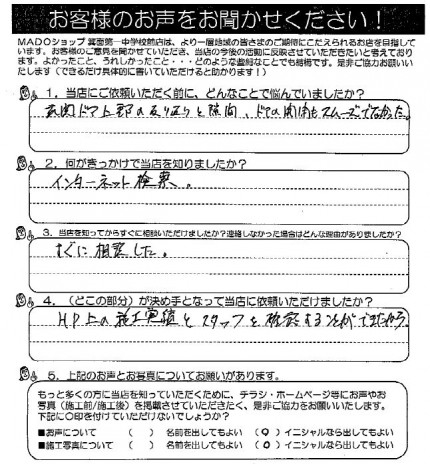 お客様のお声をお聞かせください！
MADOショップ 箕面第一中学校前店は、より一層地域の皆さまのご期待にこたえられるお店を目指して
います。お客様のご意見を聞かせていただき、当店の今後の活動に反映させていただきたいと考えており
ます。よかったこと、うれしかったこと・・・どのような些細なことでも結構です。是非ご協力お願いい
たします（できるだけ具体的に書いていただけると助かります！）
1．当店にご依頼いただく前に、どんなことで悩んでいましたか？
玄関ドア上部の反り返りと隙間、ドアの開閉もスムーズでなかった。
2．何がきっかけで当店を知りましたか？
インターネット検索。
3．当店を知ってからすぐに相談いただけましたか？連絡しなかった場合はどんな理由がありましたか？
すぐに相談した。
4．（どこの部分）が決め手となって当店に依頼いただけましたか？
HP上の施工実績とスタッフを確認することができたから。
5．上記のお声とお写真についてお願いがあります。
もっと多くの方に当店を知っていただくために、チラシ・ホームページ等にお声やお
写真（施工前/施工後）を掲載させていただきたく、是非ご協力をお願いいたします。
下記に○印を付けていただけないでしょうか？
■お声について （ ） 名前を出してもよい （○）イニシャルなら出してもよい
■施工写真について （ ） 名前を出してもよい （○）イニシャルなら出してもよい